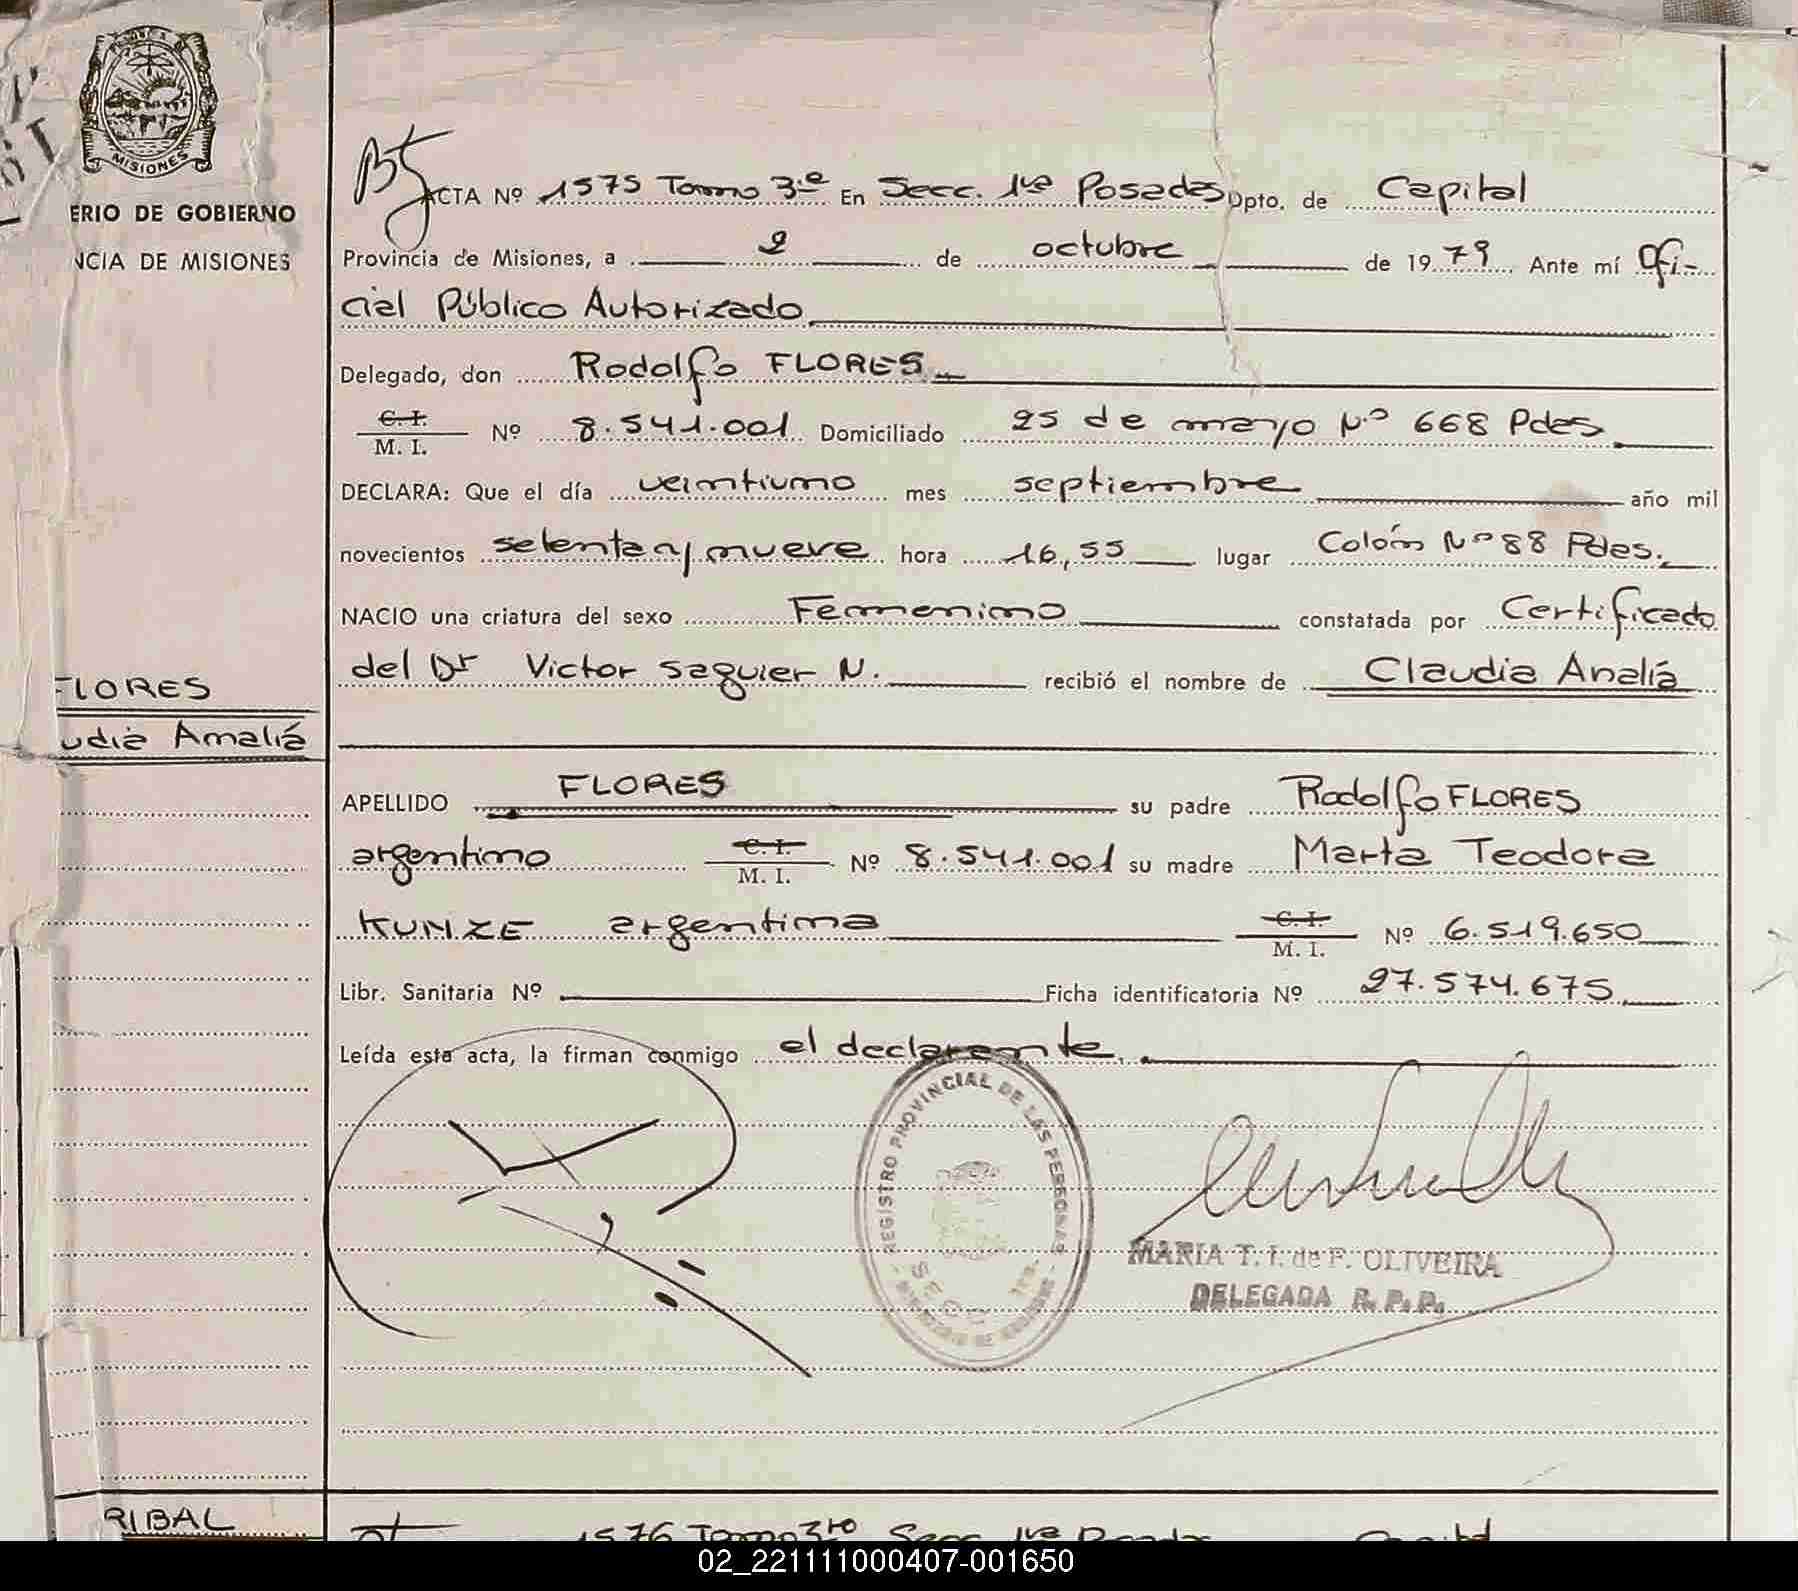 MISIONES
ERIO DE GOBIERNO
NCIA DE MISIONES
ACTA Nº 1575 Tomo 3º En Secc. 1ra Posadas Dpto. de Capital
Provincia de Misiones, a 2 de octubre de 1979 Ante mí Ofi-
cial Público Autorizado
Delegado, don Rodolfo FLORES
C. I.
M. I. Nº 8.541.001 Domiciliado 25 de mayo Nº 668 Pdas
DECLARA: Que el día veintiuno mes septiembre año mil
novecientos setenta y nueve hora 16,55 lugar Colón Nº 88 Pdas.
NACIO una criatura del sexo Femenino constatada por Certificado
del Dr Victor Saguier N. recibió el nombre de Claudia Analía
FLORES
udia Analía
APELLIDO FLORES su padre Rodolfo FLORES
argentino C. I.
M. I. Nº 8.541.001 su madre Marta Teodora
KUNZE argentina C. I.
M. I. Nº 6.519.650
Libr. Sanitaria Nº Ficha identificatoria Nº 27.574.675
Leída esta acta, la firman conmigo el declarante.
REGISTRO PROVINCIAL DE LAS PERSONAS
SECC. 1ra.
MARIA T. I. de F. OLIVEIRA
DELEGADA R. P. P.
RIBAL
1576 Tomo 3ro Secc 1ra Posadas Capital
02_221111000407-001650